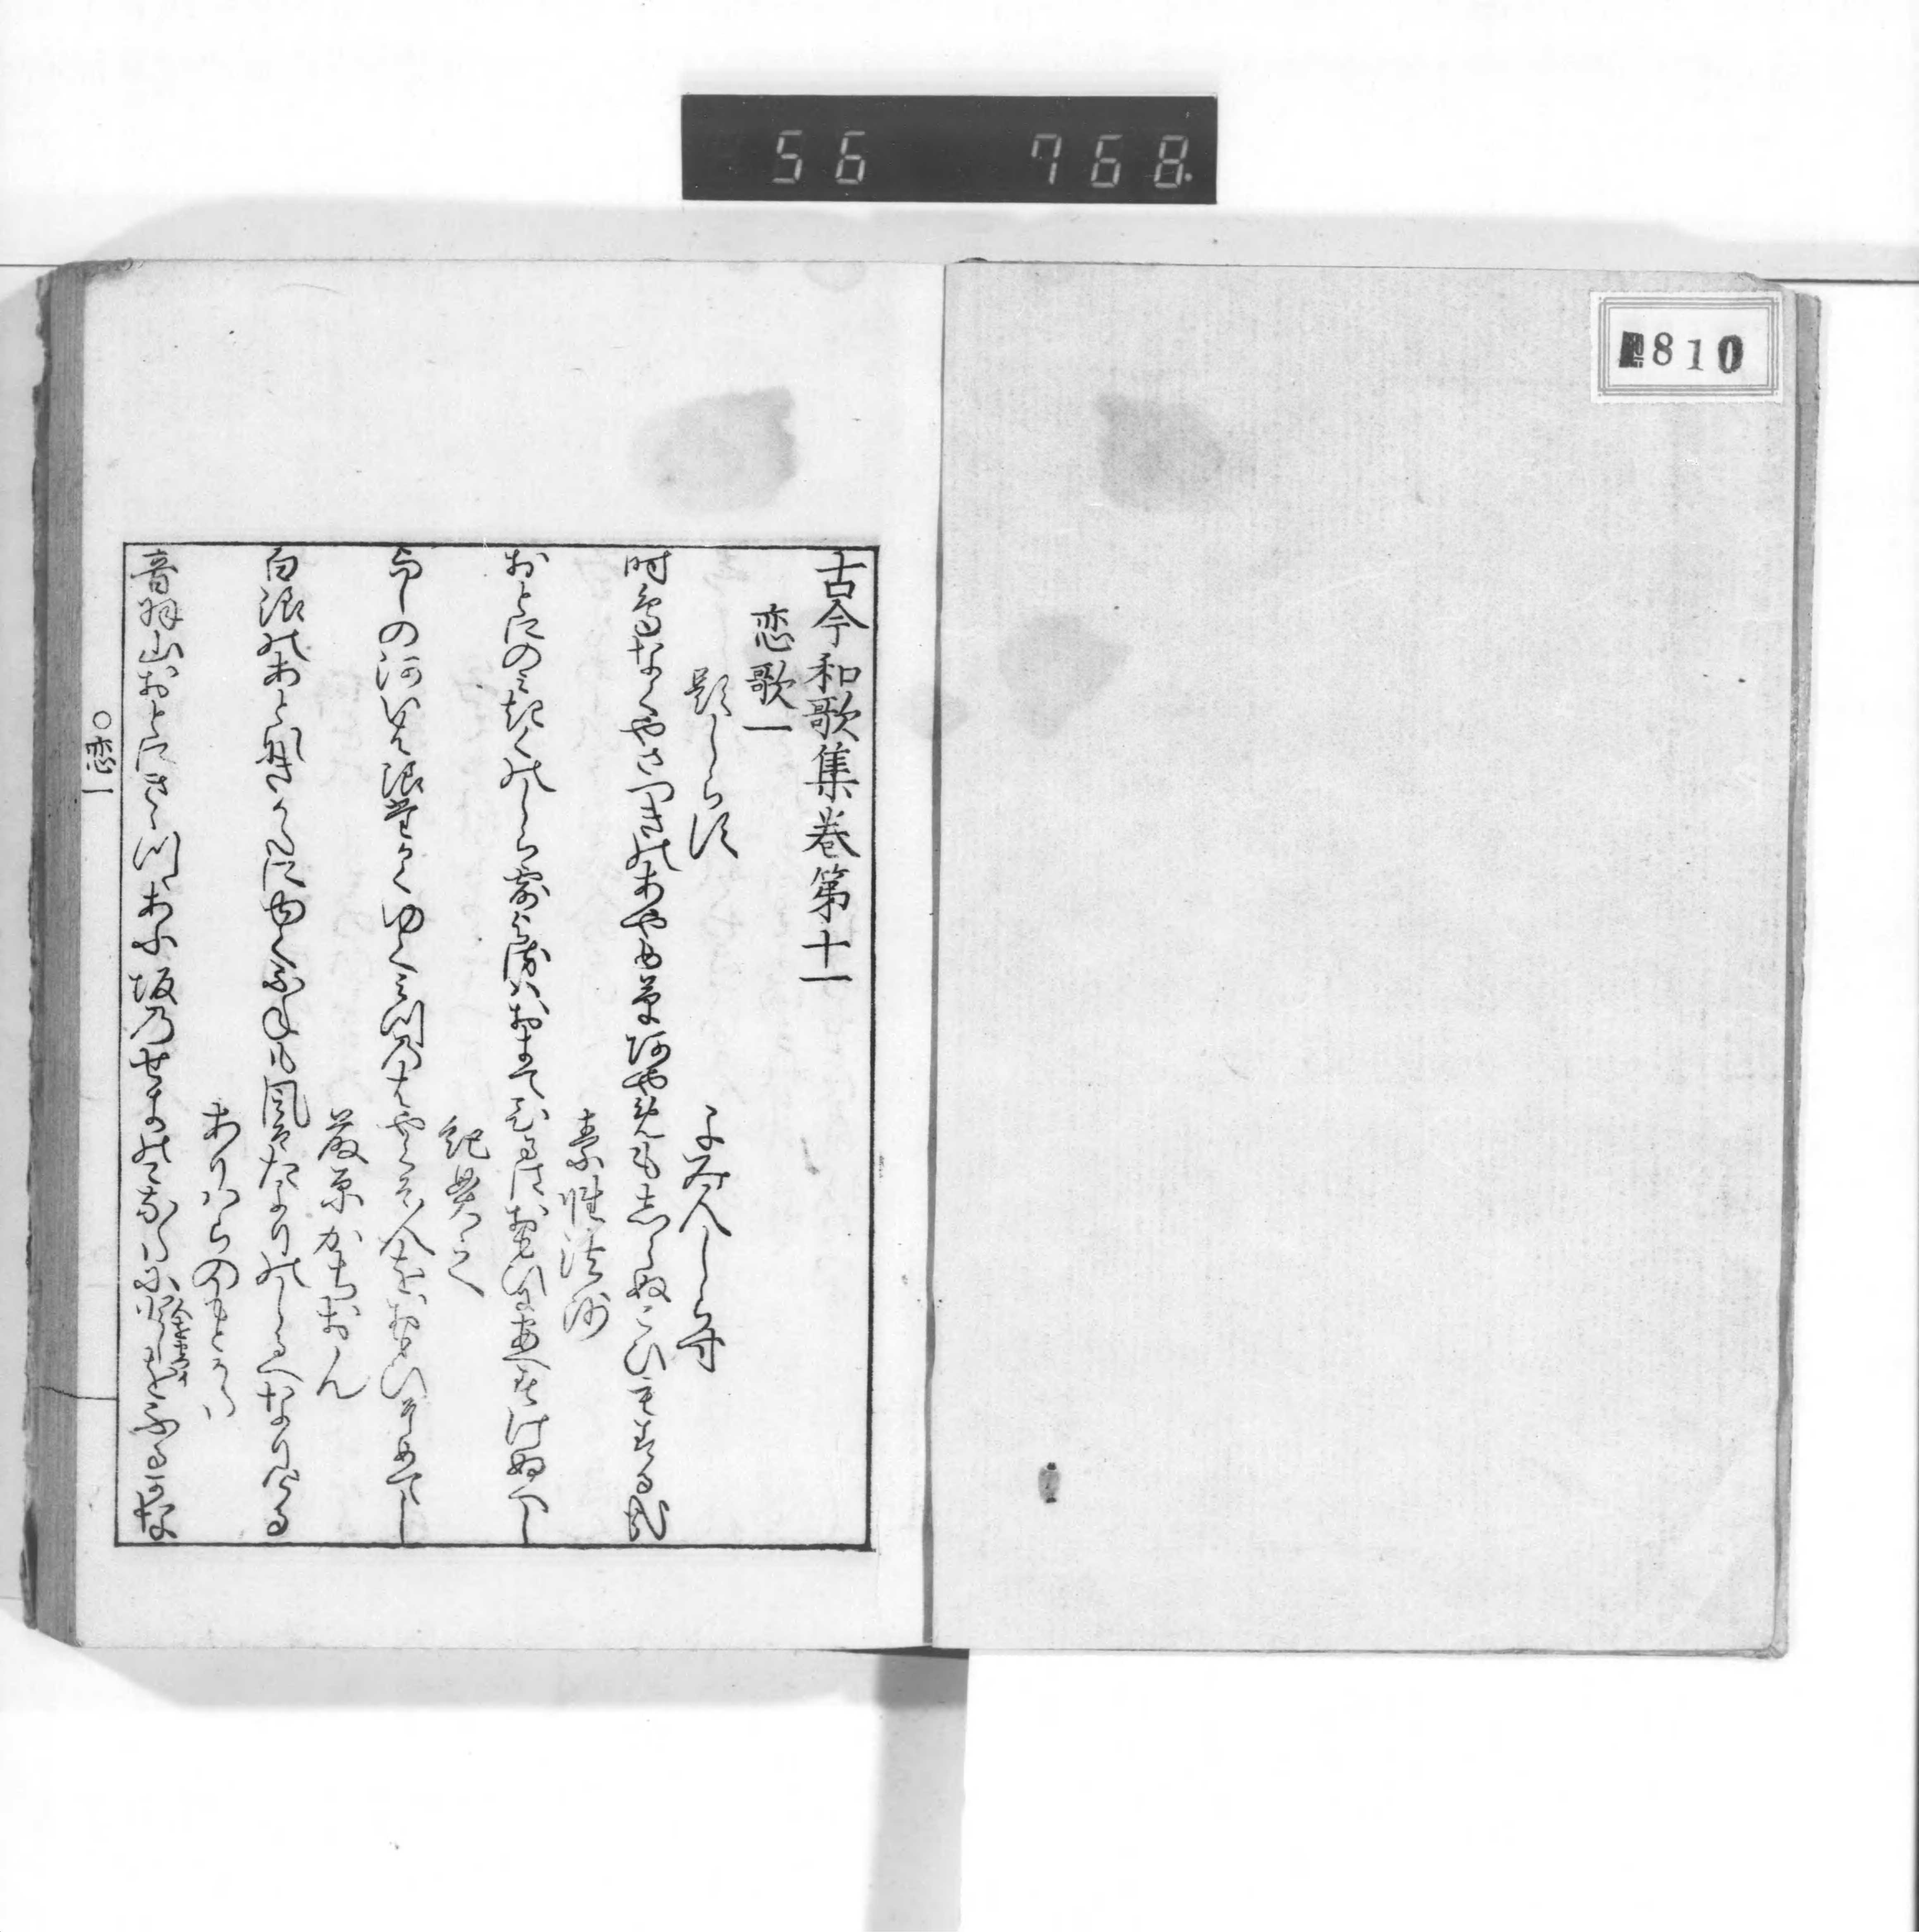 56 768
810
古今和歌集巻第十一
恋歌一
題しらす
よみ人しらす
時鳥なくやさつきのあやめ草あやめもしらぬこひもする哉
素性法師
おとにのみきくのしら露よるはおきてひるはおもひにあへすけぬへし
紀貫之
よしの河いは浪たかくゆく水のはやくそ人をおもひそめてし
藤原かちおん
白浪のあとなきかたに行くふねも風そたよりのしるへなりける
ありはらのもとかた
音羽山おとにきゝつゝあふ坂の せきのこなたに 年をふるかな
○恋一